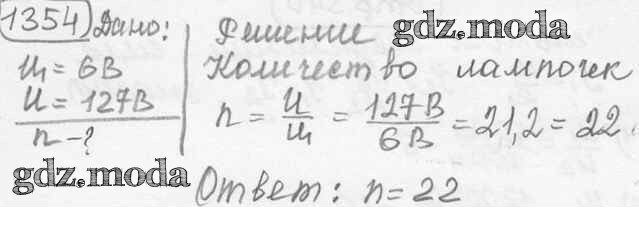 1354) Дано:
U₁ = 6В
U = 127В
n - ?
gdz.moda
Решение gdz.moda
Количество лампочек
n = U/U₁ = 127В/6В = 21,2 = 22
Ответ: n = 22